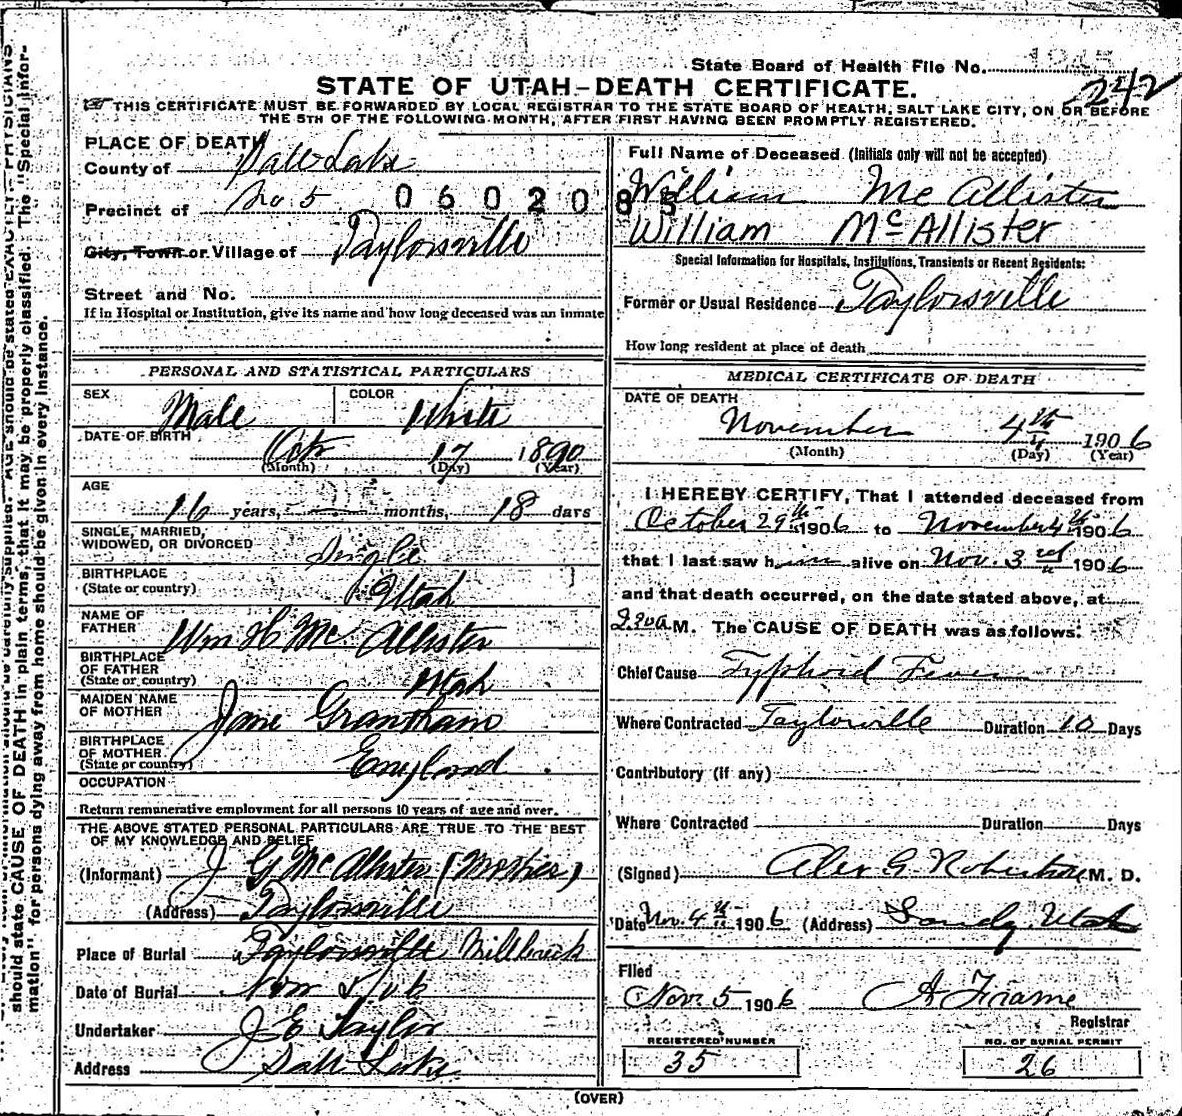 State Board of Health File No.
242
STATE OF UTAH-DEATH CERTIFICATE.
THIS CERTIFICATE MUST BE FORWARDED BY LOCAL REGISTRAR TO THE STATE BOARD OF HEALTH, SALT LAKE CITY, ON OR BEFORE
THE 5TH OF THE FOLLOWING MONTH, AFTER FIRST HAVING BEEN PROMPTLY REGISTERED.
PLACE OF DEATH
County of Salt Lake
Precinct of No 5 0602085
City, Town or Village of Taylorsville
Street and No.
If in Hospital or Institution, give its name and how long deceased was an inmate
PERSONAL AND STATISTICAL PARTICULARS
SEX Male COLOR White
DATE OF BIRTH Oct 17 1890
(Month) (Day) (Year)
AGE
16 years, months, 18 days
SINGLE, MARRIED,
WIDOWED, OR DIVORCED Single
BIRTHPLACE
(State or country) Utah
NAME OF
FATHER Wm H McAllister
BIRTHPLACE
OF FATHER
(State or country) Utah
MAIDEN NAME
OF MOTHER Jane Grantham
BIRTHPLACE
OF MOTHER
(State or country) England
OCCUPATION
Return remunerative employment for all persons 10 years of age and over.
THE ABOVE STATED PERSONAL PARTICULARS ARE TRUE TO THE BEST
OF MY KNOWLEDGE AND BELIEF
(Informant) J G McAllister (Mother)
(Address) Taylorsville
Place of Burial Taylorsville Millcreek
Date of Burial Nov
Undertaker J E Taylor
Address Salt Lake
Full Name of Deceased (Initials only will not be accepted)
William McAllister
William McAllister
Special Information for Hospitals, Institutions, Transients or Recent Residents:
Former or Usual Residence Taylorsville
How long resident at place of death
MEDICAL CERTIFICATE OF DEATH
DATE OF DEATH
November 4th 1906
(Month) (Day) (Year)
I HEREBY CERTIFY, That I attended deceased from
October 29th 1906 to November 4th 1906
that I last saw him alive on Nov. 3rd 1906
and that death occurred, on the date stated above, at
M. The CAUSE OF DEATH was as follows:
Chief Cause Typhoid Fever
Where Contracted Taylorville Duration 10 Days
Contributory (if any)
Where Contracted Duration Days
(Signed) Alex G. Robertson M. D.
Date Nov. 4th 1906 (Address) Sandy, Utah
Filed
Nov. 5 1906 A Frame
Registrar
REGISTERED NUMBER
35
NO. OF BURIAL PERMIT
26
(OVER)
AGE should be stated EXACTLY. PHYSICIANS
should state CAUSE OF DEATH in plain terms, that it may be properly classified. The "Special Infor-
mation" for persons dying away from home should be given in every instance.